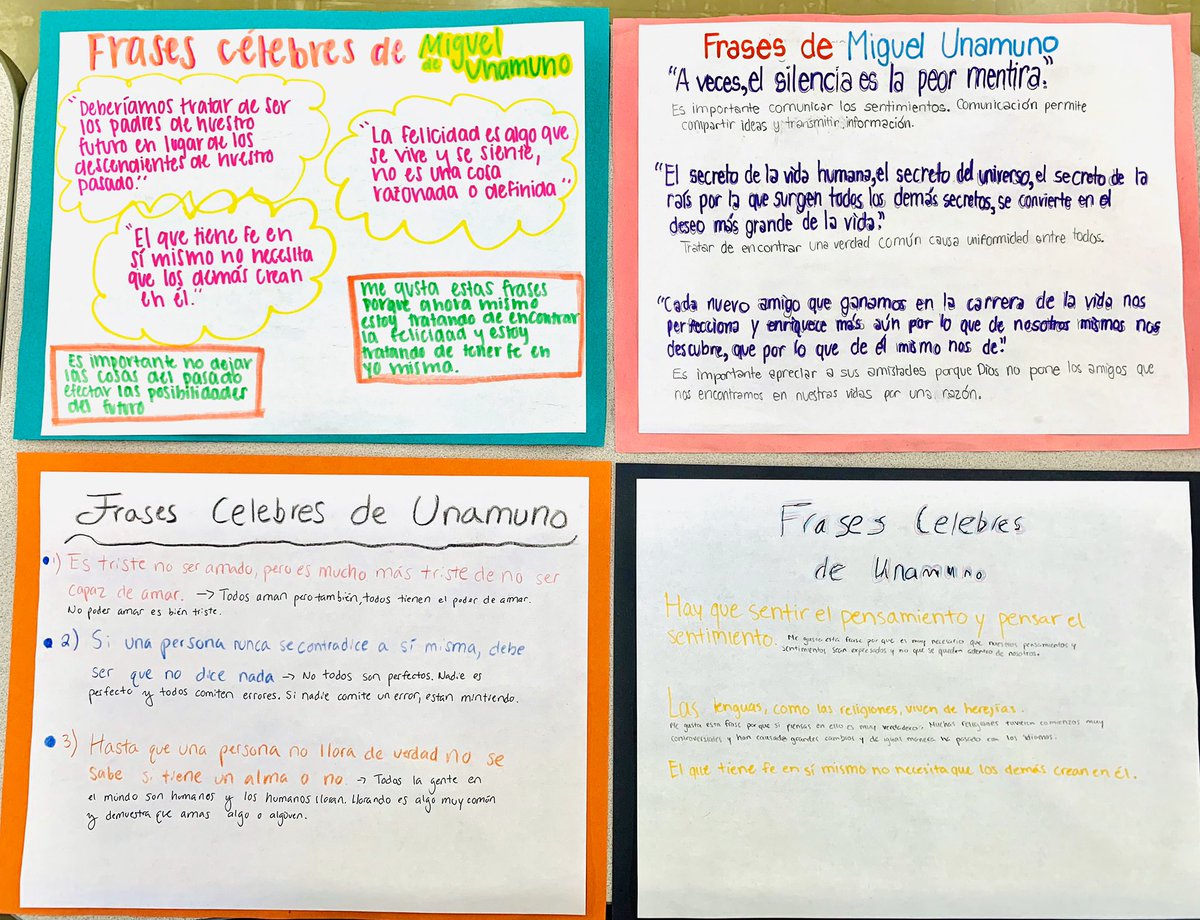 Frases célebres de Miguel de Unamuno
"Deberíamos tratar de ser
los padres de nuestro
futuro en lugar de los
descendientes de nuestro
pasado."
"La felicidad es algo que
se vive y se siente,
no es una cosa
razonada o definida"
"El que tiene fe en
sí mismo no necesita
que los demás crean
en él."
me gusta estas frases
porque ahora mismo
estoy tratando de encontrar
la felicidad y estoy
tratando de tener fe en
yo misma.
Es importante no dejar
las cosas del pasado
efectar las posibilidades
del futuro
Frases de Miguel Unamuno
"A veces, el silencia es la peor mentira."
Es importante comunicar los sentimientos. Comunicación permite
compartir ideas y transmitir información.
"El secreto de la vida humana, el secreto del universo, el secreto de la
raís por la que surgen todos los demás secretos, se convierte en el
deseo más grande de la vida."
Tratar de encontrar una verdad común causa uniformidad entre todos.
"Cada nuevo amigo que ganamos en la carrera de la vida nos
perfecciona y enriquece más aún por lo que de nosotros mismos nos
descubre, que por lo que de él mismo nos de."
Es importante apreciar a sus amistades porque Dios no pone los amigos que
nos encontramos en nuestras vidas por una razón.
Frases Celebres de Unamuno
1) Es triste no ser amado, pero es mucho más triste de no ser
capaz de amar. → Todos aman pero también, todos tienen el poder de amar.
No poder amar es bién triste.
2) Si una persona nunca se contradice a sí misma, debe
ser que no dice nada → No todos son perfectos. Nadie es
perfecto y todos comiten errores. Si nadie comite un error, estan mintiendo.
3) Hasta que una persona no llora de verdad no se
sabe si tiene un alma o no. → Todas la gente en
el múndo son humanos y los humanos lloran. Llorando es algo muy común
y demuestra que amas algo o algüven.
Frases Celebres
de Unamuno
Hay que sentir el pensamiento y pensar el
sentimiento. Me gusta esta frase por que es muy necesario que nuestros pensamientos y
sentimientos sean expresados y no que se queden adentro de nosotros.
Las lenguas, como las religiones, viven de herejías.
Me gusta esta frase porque si piensas en ello es muy verdadero. Muchas religiones tuvieron comienzos muy
controversiales y han causado grandes cambios y de igual manera ha pasado con los idiomas.
El que tiene fe en sí mismo no necesita que los demás crean en él.